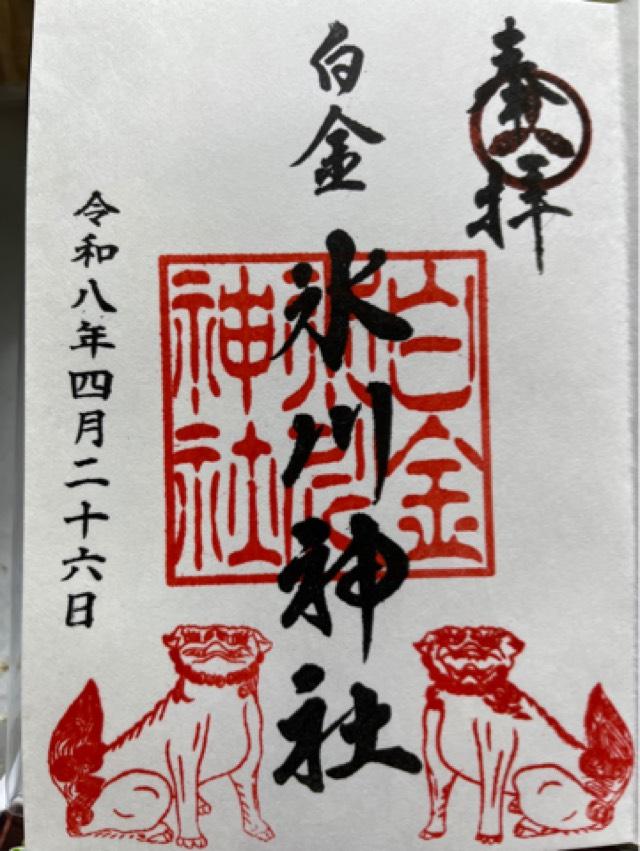 奉拝
白金
氷川神社
白金
氷川
神社
令和八年四月二十六日